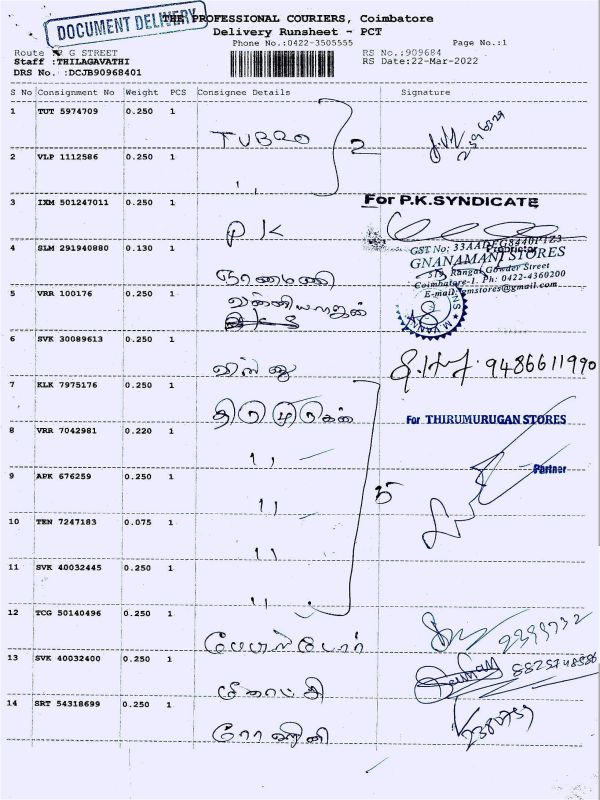 DOCUMENT DELIVERY
THE PROFESSIONAL COURIERS, Coimbatore
Delivery Runsheet - PCT
Phone No.:0422-3505555
Page No.:1
Route G STREET
RS No.:909684
Staff :THILAGAVATHI
RS Date:22-Mar-2022
DRS No. :DCJB90968401
S No Consignment No Weight PCS Consignee Details Signature
1 TUT 5974709 0.250 1
TUBRO 2
2 VLP 1112586 0.250 1
,,
3 IXM 501247011 0.250 1
For P.K.SYNDICATE
PK
Proprietor
4 SLM 291940880 0.130 1
GST No: 33AADFG8440P1Z3
GNANAMANI STORES
519, Rangai Gowder Street
Coimbatore-1. Ph: 0422-4360200
E-mail: gmstores@gmail.com
ஞானமணி
5 VRR 100176 0.250 1
6 SVK 30089613 0.250 1
விஸ்ணு
9486611990
7 KLK 7975176 0.250 1
திருமுருகன்
For THIRUMURUGAN STORES
8 VRR 7042981 0.220 1
,,
Partner
9 APK 676259 0.250 1
,,
5
10 TEN 7247183 0.075 1
,,
11 SVK 40032445 0.250 1
,,
12 TCG 50140496 0.250 1
13 SVK 40032400 0.250 1
8825748586
14 SRT 54318699 0.250 1
ரோஹினி